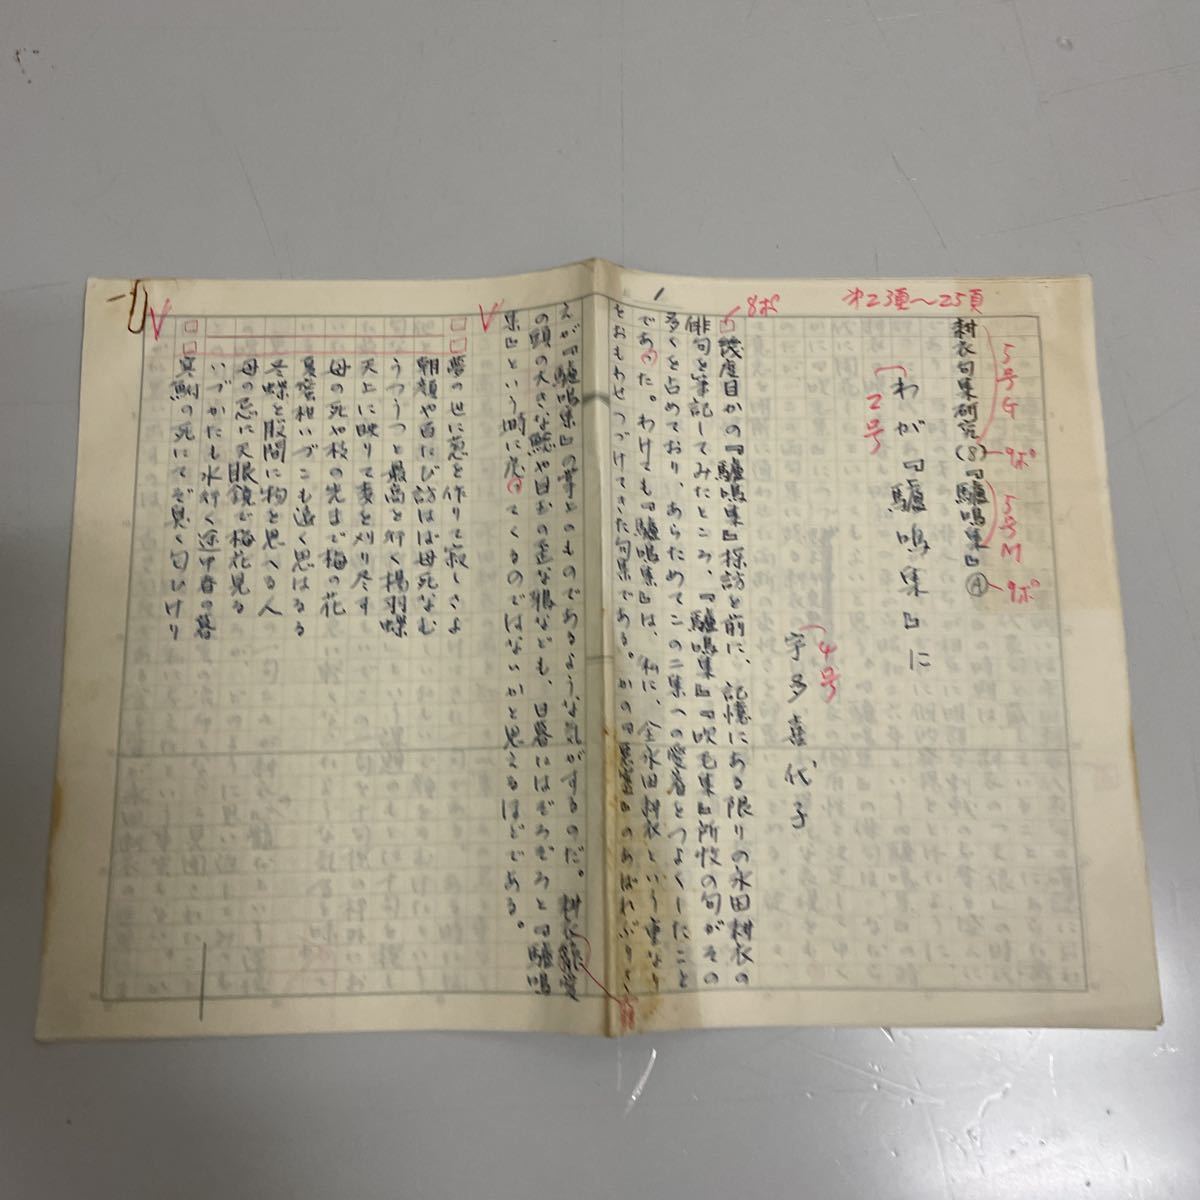 才23頁〜25頁
耕衣句集研究(8)『驢鳴集』A
5号G
9ポ
5号M
9ポ
わが『驢鳴集』に
2号
宇多喜代子
4号
8ポ
幾度目かの『驢鳴集』探訪を前に、記憶にある限りの永田耕衣の
俳句を筆記してみたところ、『驢鳴集』『吹毛集』所収の句がその
多くを占めており、あらためてこの二集への愛着をつよくしたこと
であった。わけても『驢鳴集』は、私に、全永田耕衣という重なり
をおもわせつづけてきた句集である。かの『悪霊』のあばれぶりさ
えが『驢鳴集』の掌上のものであるような気がするのだ。耕衣寵愛
の頭の大きな鯰や目玉の歪な狼なども、日暮にはぞろぞろと『驢鳴
集』という塒に戻ってくるのではないかと思えるほどである。
夢の世に葱を作りて寂しさよ
朝顔や百たび訪はば母死なむ
うつうつと最高を行く揚羽蝶
天上に映りて麦を刈り尽す
母の死や枝の先まで梅の花
夏蜜柑いづこも遠く思はるる
冬蝶を股間に物を思へる人
母の忌に天眼鏡で梅花見る
いづかたも水行く途中春の暮
寒鮒の死にてぞ臭く匂ひけり